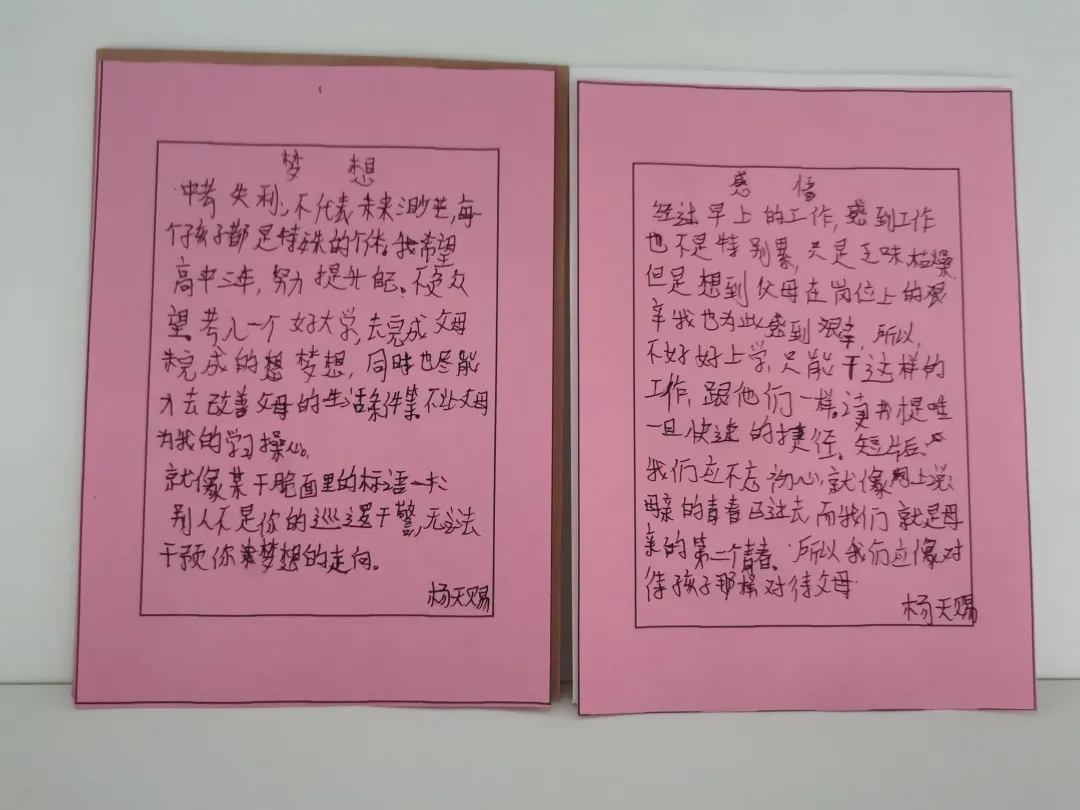 梦 想
中考失利,不代表未来渺茫,每
个孩子都是特殊的个体。我希望
高中三年,努力提升自己。不负众
望考入一个好大学,去完成父母
未完成的梦想,同时也尽能
力去改善父母的生活条件等。不让父母
为我的学习操心。
就像某干脆面里的标语一样:
别人不是你的巡逻干警,无法
干预你梦想的走向。
杨天赐
感 悟
经过早上的工作,感到工作
也不是特别累,只是乏味枯燥
但是想到父母在岗位上的艰
辛我也为此感到艰辛,所以,
不好好上学,只能干这样的
工作,跟他们一样。读书是唯
一且快速的捷径。
我们应不忘初心,就像网上说
母亲的青春已过去而我们就是母
亲的第二个青春。所以我们应像对
待孩子那样对待父母
杨天赐